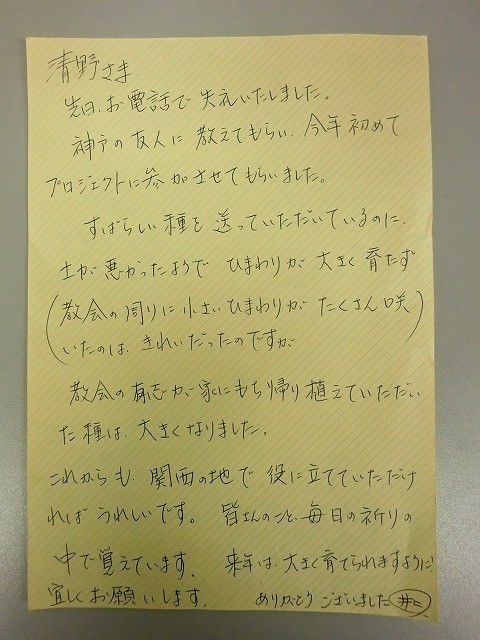 清野さま
先日、お電話で失礼いたしました。
神戸の友人に教えてもらい、今年初めて
プロジェクトに参加させてもらいました。
すばらしい種を送っていただいているのに、
土が悪かったようでひまわりが大きく育たず
(教会の周りに小さいひまわりがたくさん咲
いたのは、きれいだったのですが)
教会の有志が家にもち帰り植えていただい
た種は、大きくなりました。
これからも、関西の地で役に立てていただけ
ればうれしいです。皆さんのこと、毎日の祈りの
中で覚えています。来年は、大きく育てられますように!
宜しくお願いします。ありがとうございました